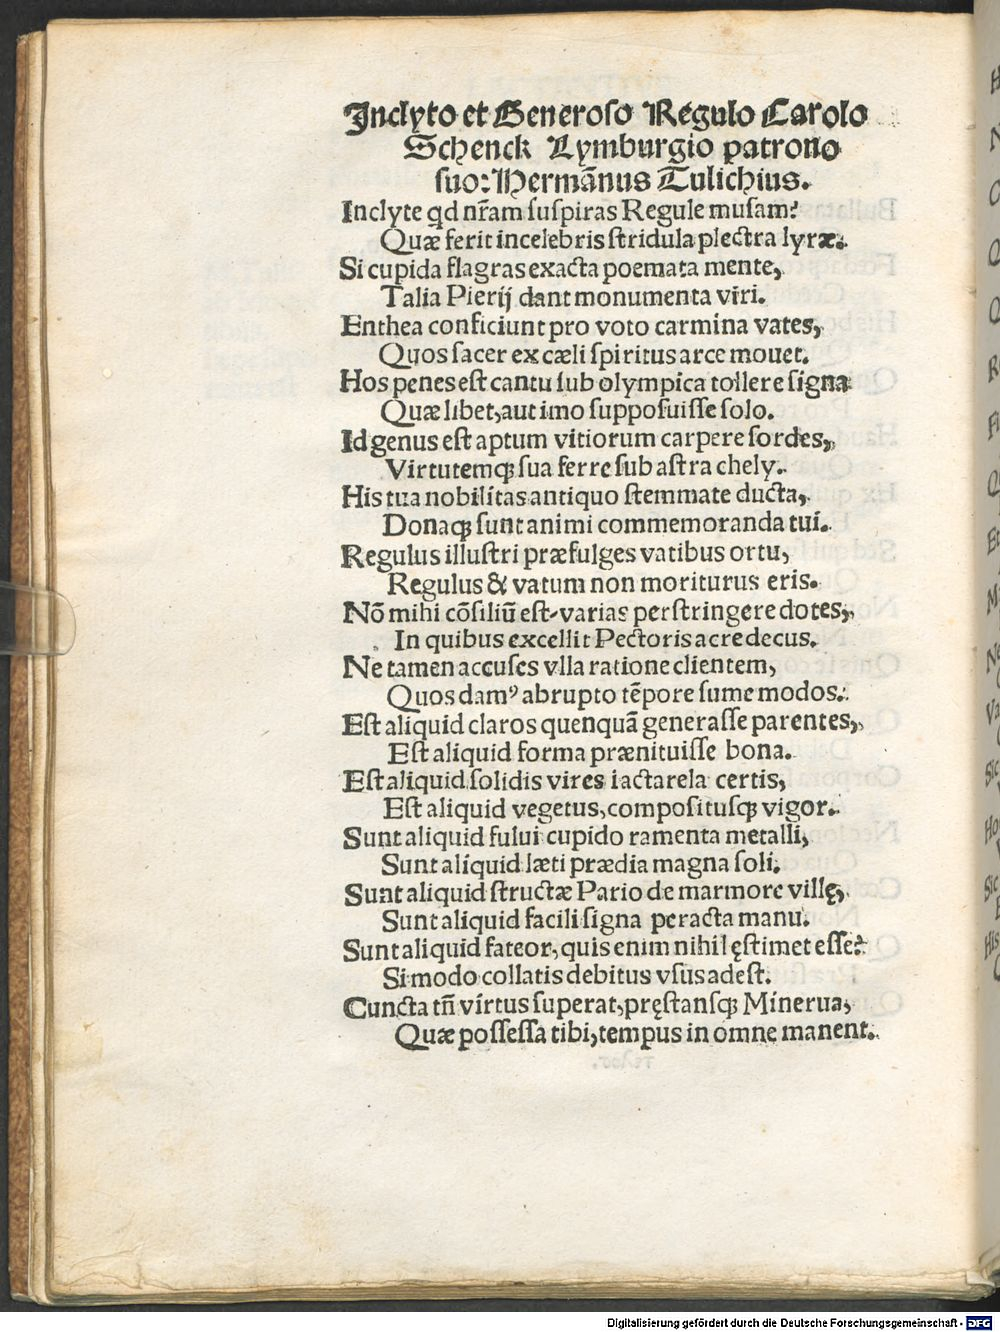 Inclyto et Generoso Regulo Carolo
Schenck Lymburgio patrono
suo: Hermãnus Tulichius.
Inclyte qd nr̃am suspiras Regule musam?
Quæ ferit incelebris stridula plectra lyræ.
Si cupida flagras exacta poemata mente,
Talia Pierij dant monumenta viri.
Enthea conficiunt pro voto carmina vates,
Quos sacer ex cæli spiritus arce mouet.
Hos penes est cantu sub olympica tollere signa
Quæ libet, aut imo supposuisse solo.
Id genus est aptum vitiorum carpere sordes,
Virtutemqꝫ sua ferre sub astra chely.
His tua nobilitas antiquo stemmate ducta,
Donaqꝫ sunt animi commemoranda tui.
Regulus illustri præfulges vatibus ortu,
Regulus & vatum non moriturus eris.
Nõ mihi cõsiliũ est varias perstringere dotes,
In quibus excellit Pectoris acre decus.
Ne tamen accuses vlla ratione clientem,
Quos damꝰ abrupto tẽpore sume modos.
Est aliquid claros quenquã generasse parentes,
Est aliquid forma prænituisse bona.
Est aliquid solidis vires iactarela certis,
Est aliquid vegetus, compositusqꝫ vigor.
Sunt aliquid fului cupido ramenta metalli,
Sunt aliquid læti prædia magna soli.
Sunt aliquid structæ Pario de marmore villę,
Sunt aliquid facili signa peracta manu.
Sunt aliquid fateor, quis enim nihil ęstimet esse?
Si modo collatis debitus vsus adest.
Cuncta tñ virtus superat, pręstansqꝫ Minerua,
Quæ possessa tibi, tempus in omne manent.
Digitalisierung gefördert durch die Deutsche Forschungsgemeinschaft - DFG